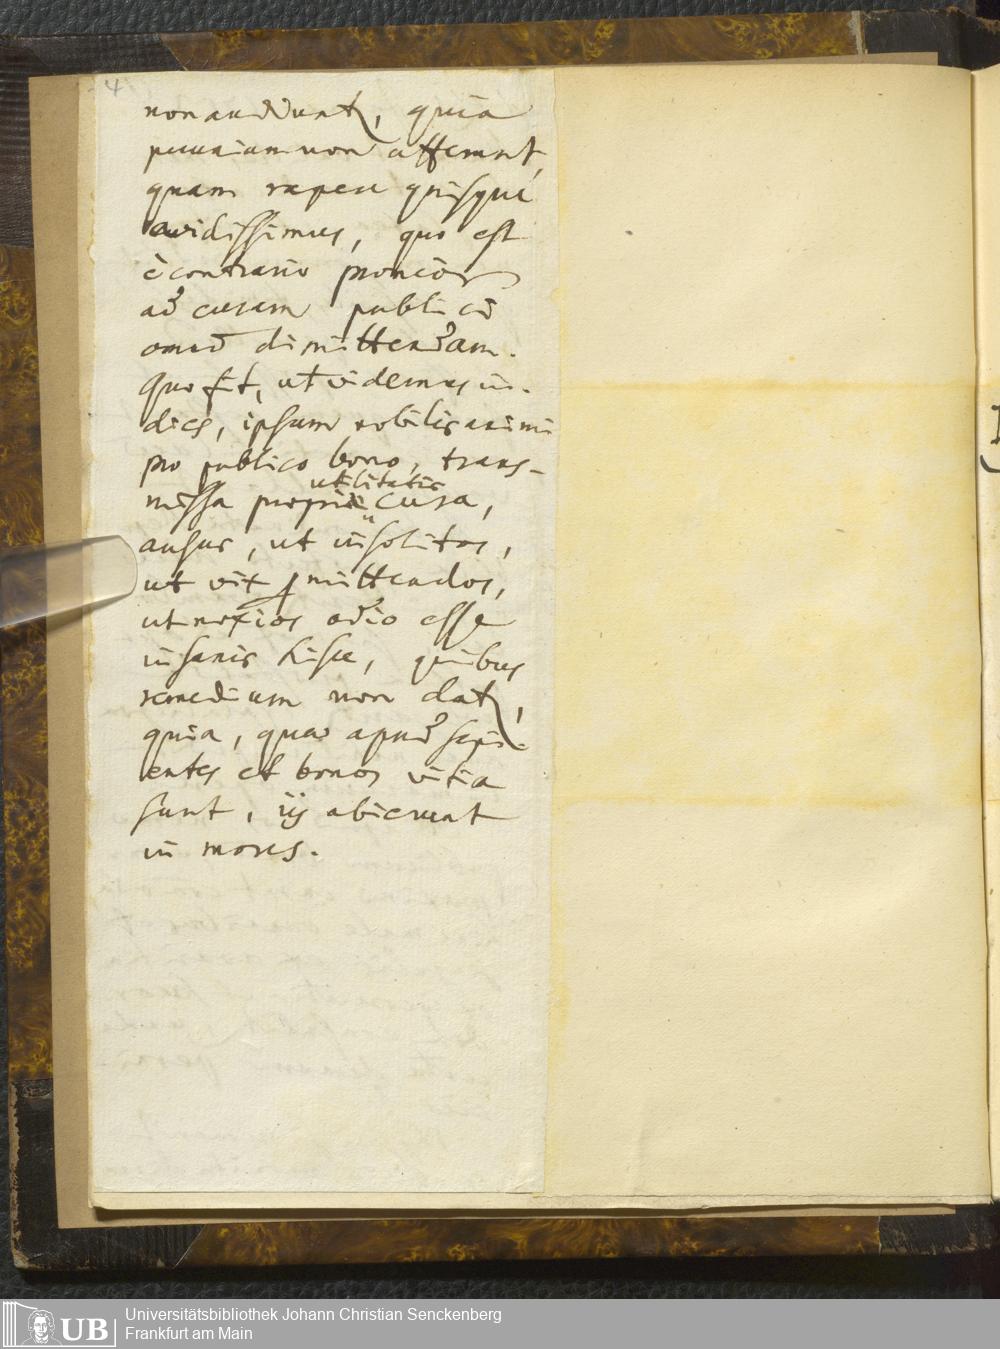 4
non audiunt, quia
pecuniam non afferunt,
quam rapere quisque
avidissimus, quo est
è contrario pronior
ad curam publici
omnem dimittendam.
Quo fit, ut videmus in-
dies, ipsum nobilis animi
pro publico bono, trans-
missa propriae utilitatis cura,
ausus, ut insolitos,
ut vix permittendos,
ut noxios odio esse
insanis hisce, quibus
remedium non datur,
quia, quae apud sapi-
entes et bonos vitia
sunt, iis abierunt
in mores.
UB
Universitätsbibliothek Johann Christian Senckenberg
Frankfurt am Main